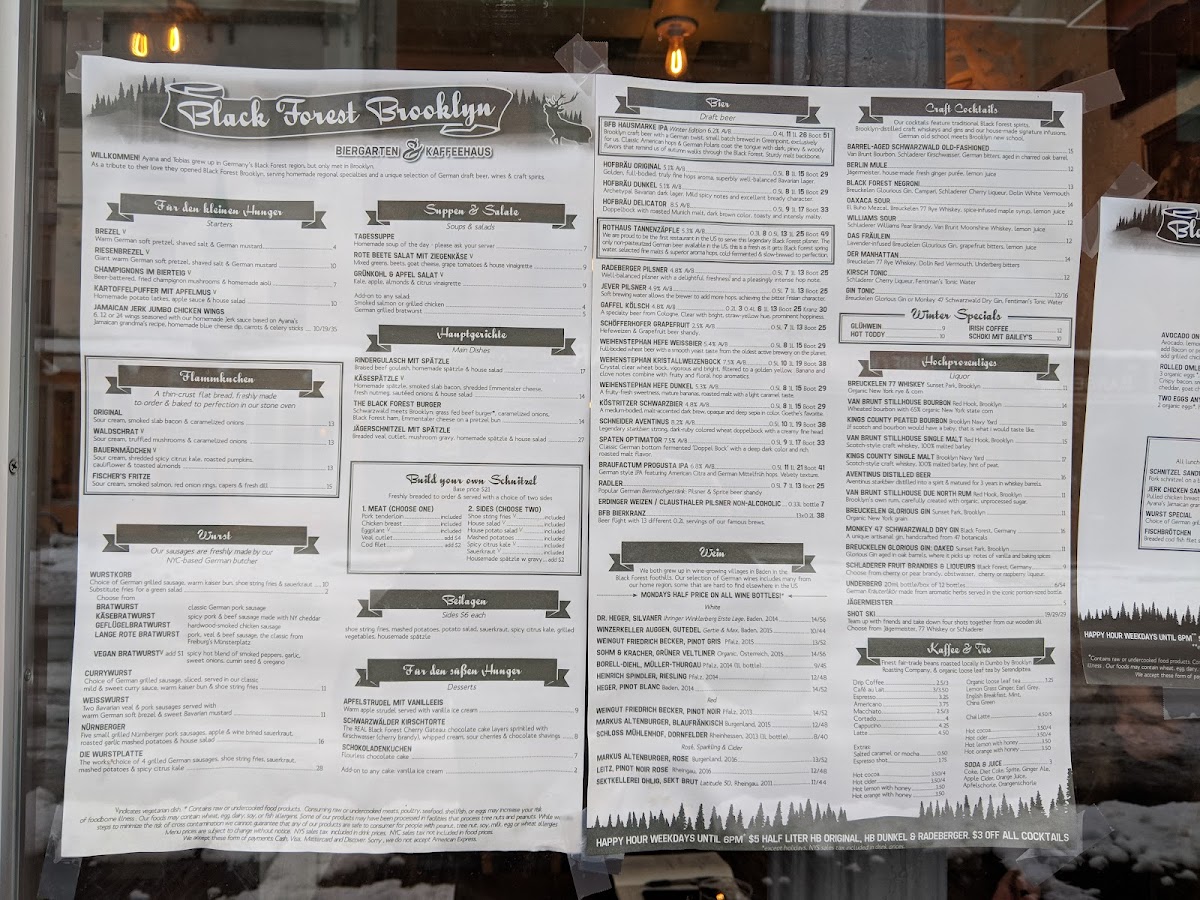 Black Forest Brooklyn
BIERGARTEN & KAFFEEHAUS
WILLKOMMEN! Ayana and Tobias grew up in Germany's Black Forest region, but only met in Brooklyn.
As a tribute to their love they opened Black Forest Brooklyn, serving homemade regional specialties and a unique selection of German draft beer, wines & craft spirits.
Für den kleinen Hunger
Starters
BREZEL V
Warm German soft pretzel, shaved salt & German mustard 4
RIESENBREZEL V
Giant warm German soft pretzel, shaved salt & German mustard 10
CHAMPIGNONS IM BIERTEIG V
Beer-battered, fried champignon mushrooms & homemade aioli 7
KARTOFFELPUFFER MIT APFELMUS V
Homemade potato latkes, apple sauce & house salad 10
JAMAICAN JERK JUMBO CHICKEN WINGS
6, 12 or 24 wings seasoned with our homemade Jerk sauce based on Ayana's
Jamaican grandma's recipe, homemade blue cheese dip, carrots & celery sticks 10/19/35
Flammkuchen
A thin-crust flat bread, freshly made
to order & baked to perfection in our stone oven
ORIGINAL
Sour cream, smoked slab bacon & caramelized onions 13
WALDSCHRAT V
Sour cream, truffled mushrooms & caramelized onions 13
BAUERNMÄDCHEN V
Sour cream, shredded spicy citrus kale, roasted pumpkins,
cauliflower & toasted almonds 13
FISCHER'S FRITZE
Sour cream, smoked salmon, red onion rings, capers & fresh dill 15
Wurst
Our sausages are freshly made by our
NYC-based German butcher
WURSTKORB
Choice of German grilled sausage, warm kaiser bun, shoe string fries & sauerkraut 10
Substitute fries for a green salad 2
Choose from
BRATWURST classic German pork sausage
KÄSEBRATWURST spicy pork & beef sausage made with NY cheddar
GEFLÜGELBRATWURST hardwood-smoked chicken sausage
LANGE ROTE BRATWURST pork, veal & beef sausage, the classic from
Freiburg's Münsterplatz
VEGAN BRATWURST V add $1 spicy hot blend of smoked peppers, garlic,
sweet onions, cumin seed & oregano
CURRYWURST
Choice of German grilled sausage, sliced, served in our classic
mild & sweet curry sauce, warm kaiser bun & shoe string fries 11
WEISSWURST
Two Bavarian veal & pork sausages served with
warm German soft brezel & sweet Bavarian mustard 11
NÜRNBERGER
Five small grilled Nürnberger pork sausages, apple & wine brined sauerkraut,
roasted garlic mashed potatoes & house salad 16
DIE WURSTPLATTE
The works! Choice of 4 grilled German sausages, shoe string fries, sauerkraut,
mashed potatoes & spicy citrus kale 28
Suppen & Salate
Soups & salads
TAGESSUPPE
Homemade soup of the day - please ask your server 7
ROTE BEETE SALAT MIT ZIEGENKÄSE V
Mixed greens, beets, goat cheese, grape tomatoes & house vinaigrette 9
GRÜNKOHL & APFEL SALAT V
Kale, apple, almonds & citrus vinaigrette 9
Add-on to any salad:
Smoked salmon or grilled chicken 4
German grilled bratwurst 5
Hauptgerichte
Main Dishes
RINDERGULASCH MIT SPÄTZLE
Braised beef goulash, homemade spätzle & house salad 17
KÄSESPÄTZLE V
Homemade spätzle, smoked slab bacon, shredded Emmentaler cheese,
fresh nutmeg, sautéed onions & house salad 14
THE BLACK FOREST BURGER
Schwarzwald meets Brooklyn: grass fed beef burger*, caramelized onions,
Black Forest ham, Emmentaler cheese on a pretzel bun 14
JÄGERSCHNITZEL MIT SPÄTZLE
Breaded veal cutlet, mushroom gravy, homemade spätzle & house salad 27
Build your own Schnitzel
Base price $21
Freshly breaded to order & served with a choice of two sides
1. MEAT (CHOOSE ONE)
Pork tenderloin included
Chicken breast included
Eggplant V included
Veal cutlet add $4
Cod filet add $2
2. SIDES (CHOOSE TWO)
Shoe string fries V included
House salad V included
House potato salad V included
Mashed potatoes included
Spicy citrus kale V included
Sauerkraut V included
Homemade spätzle w/gravy add $2
Beilagen
Sides $6 each
shoe string fries, mashed potatoes, potato salad, sauerkraut, spicy citrus kale, grilled
vegetables, homemade spätzle
Für den süßen Hunger
Desserts
APFELSTRUDEL MIT VANILLEEIS
Warm apple strudel, served with vanilla ice cream 9
SCHWARZWÄLDER KIRSCHTORTE
The REAL Black Forest Cherry Gateau: chocolate cake layers sprinkled with
Kirschwasser (cherry brandy), whipped cream, sour cherries & chocolate shavings 8
SCHOKOLADENKUCHEN
Flourless chocolate cake 7
Add-on to any cake: vanilla ice cream 2
V indicates vegetarian dish. * Contains raw or undercooked food products. Consuming raw or undercooked meats, poultry, seafood, shellfish, or eggs may increase your risk
of foodborne illness. Our foods may contain wheat, egg, dairy, soy, or fish allergens. Some of our products may have been processed in facilities that process tree nuts and peanuts. While we
steps to minimize the risk of cross contamination we cannot guarantee that any of our products are safe to consume for people with peanut, tree nut, soy, milk, egg or wheat allergies.
Menu prices are subject to change without notice. NYS sales tax included in drink prices. NYC sales tax not included in food prices.
We accept these forms of payments: Cash, Visa, Mastercard and Discover. Sorry, we do not accept American Express.
Bier
Draft beer
BFB HAUSMARKE IPA Winter Edition 6.2% A/B 0.4L 11 1L 26 Boot 51
Brooklyn craft beer with a German twist, small batch brewed in Greenpoint, exclusively
for us. Classic American hops & German Polaris coat the tongue with dark, piney & woody
flavors that remind us of autumn walks through the Black Forest. Sturdy malt backbone.
HOFBRÄU ORIGINAL 5.1% A/B 0.5L 8 1L 15 Boot 29
Golden, full-bodied, truly fine hops aroma, superbly well-balanced Bavarian Lager.
HOFBRÄU DUNKEL 5.5% A/B 0.5L 8 1L 15 Boot 29
Archetypal Bavarian dark lager. Mild spicy notes and excellent bready character.
HOFBRÄU DELICATOR 8.5% A/B 0.5L 9 1L 17 Boot 33
Doppelbock with roasted Munich malt, dark brown color, toasty and intensely malty.
ROTHAUS TANNENZÄPFLE 5.3% A/B 0.3L 8 0.5L 13 1L 25 Boot 49
We are proud to be the first restaurant in the US to serve this legendary Black Forest pilsner. The
only non-pasteurized German beer available in the US, this is a fresh as it gets: Black Forest spring
water, selected fine malts & superior aroma hops, cold fermented & slow-brewed to perfection.
RADEBERGER PILSNER 4.8% A/B 0.5L 7 1L 13 Boot 25
Well-balanced pilsner with a delightful freshness and a pleasingly intense hop note.
JEVER PILSNER 4.9% A/B 0.5L 7 1L 13 Boot 25
Soft brewing water allows the brewer to add more hops, achieving the bitter Frisian character.
GAFFEL KÖLSCH 4.8% A/B 0.2L 3 0.4L 6 1L 13 Boot 25 Kranz 30
A specialty beer from Cologne. Clear with bright, straw-yellow hue, prominent hoppiness.
SCHÖFFERHOFER GRAPEFRUIT 2.5% A/B 0.5L 7 1L 13 Boot 25
Hefeweizen & Grapefruit beer shandy.
WEIHENSTEPHAN HEFE WEISSBIER 5.4% A/B 0.5L 8 1L 15 Boot 29
Full-bodied wheat beer with a smooth yeast taste from the oldest active brewery on the planet.
WEIHENSTEPHAN KRISTALLWEIZENBOCK 7.5% A/B 0.5L 10 1L 19 Boot 38
Crystal clear wheat bock, vigorous and bright, filtered to a golden yellow. Banana and
clove notes combine with fruity and floral hop aromatics.
WEIHENSTEPHAN HEFE DUNKEL 5.3% A/B 0.5L 8 1L 15 Boot 29
A fruity-fresh sweetness, mature banana, roasted malt with a light caramel taste.
KÖSTRITZER SCHWARZBIER 4.8% A/B 0.5L 8 1L 15 Boot 29
A medium-bodied, malt-accented dark brew, opaque and deep sepia in color. Goethe's favorite.
SCHNEIDER AVENTINUS 8.2% A/B 0.5L 10 1L 19 Boot 38
Legendary starkbier, strong, dark-ruby colored wheat doppelbock with a creamy, fine head.
SPATEN OPTIMATOR 7.5% A/B 0.5L 9 1L 17 Boot 33
Classic German bottom fermented "Doppel Bock" with a deep dark color and rich
roasted malt flavor.
BRAUFACTUM PROGUSTA IPA 6.8% A/B 0.5L 11 1L 21 Boot 41
German style IPA featuring American Citra and German Mittelfrüh hops. Velvety texture.
RADLER 0.5L 7 1L 13 Boot 25
Popular German Biermischgetränk: Pilsner & Sprite beer shandy
ERDINGER WEIZEN / CLAUSTHALER PILSNER NON-ALCOHOLIC 0.33L bottle 7
BFB BIERKRANZ 13x0.2L 38
Beer flight with 13 different 0.2L servings of our famous brews.
Wein
We both grew up in wine-growing villages in Baden in the
Black Forest foothills. Our selection of German wines includes many from
our home region, some that are hard to find elsewhere in the US.
MONDAYS HALF PRICE ON ALL WINE BOTTLES!*
White
DR. HEGER, SILVANER Ihringer Winklerberg Erste Lage, Baden, 2014 14/56
WINZERKELLER AUGGEN, GUTEDEL Gerbe & Max, Baden, 2015 10/44
WEINGUT FRIEDRICH BECKER, PINOT GRIS Pfalz, 2015 13/52
SOHM & KRACHER, GRÜNER VELTLINER Organic, Österreich, 2015 14/56
BORELL-DIEHL, MÜLLER-THURGAU Pfalz, 2014 (1L bottle) 9/45
HEINRICH SPINDLER, RIESLING Pfalz, 2014 12/48
HEGER, PINOT BLANC Baden, 2014 14/52
Red
WEINGUT FRIEDRICH BECKER, PINOT NOIR Pfalz, 2013 14/52
MARKUS ALTENBURGER, BLAUFRÄNKISCH Burgenland, 2015 12/48
SCHLOSS MÜHLENHOF, DORNFELDER Rheinhessen, 2013 (1L bottle) 8/40
Rosé, Sparkling & Cider
MARKUS ALTENBURGER, ROSE Burgenland, 2016 13/52
LEITZ, PINOT NOIR ROSE Rheingau, 2016 12/48
SEKTKELLEREI OHLIG, SEKT BRUT Latitude 50, Rheingau, 2011 11/44
Craft Cocktails
Our cocktails feature traditional Black Forest spirits,
Brooklyn-distilled craft whiskeys and gins and our house-made signature infusions.
German old school meets Brooklyn new school.
BARREL-AGED SCHWARZWALD OLD-FASHIONED 15
Van Brunt Bourbon, Schladerer Kirschwasser, German bitters, aged in charred oak barrel
BERLIN MULE 12
Jägermeister, house-made fresh ginger purée, lemon juice
BLACK FOREST NEGRONI 13
Breuckelen Glourious Gin, Campari, Schladerer Cherry Liqueur, Dolin White Vermouth
OAXACA SOUR 14
El Buho Mezcal, Breuckelen 77 Rye Whiskey, spice-infused maple syrup, lemon juice
WILLIAMS SOUR 12
Schladerer Williams Pear Brandy, Van Brunt Moonshine Whiskey, lemon juice
DAS FRÄULEIN 12
Lavender-infused Breuckelen Glourious Gin, grapefruit bitters, lemon juice
DER MANHATTAN 14
Breuckelen 77 Rye Whiskey, Dolin Red Vermouth, Underberg bitters
KIRSCH TONIC 12
Schladerer Cherry Liqueur, Fentiman's Tonic Water
GIN TONIC 12/16
Breuckelen Glorious Gin or Monkey 47 Schwarzwald Dry Gin, Fentiman's Tonic Water
Winter Specials
GLÜHWEIN 9
HOT TODDY 10
IRISH COFFEE 12
SCHOKI MIT BAILEY'S 10
Hochprozentiges
Liquor
BREUCKELEN 77 WHISKEY Sunset Park, Brooklyn 11
Organic New York rye & corn
VAN BRUNT STILLHOUSE BOURBON Red Hook, Brooklyn 14
Wheated bourbon with 65% organic New York state corn
KINGS COUNTY PEATED BOURBON Brooklyn Navy Yard 18
If scotch and bourbon would have a baby, that is what it would taste like.
VAN BRUNT STILLHOUSE SINGLE MALT Red Hook, Brooklyn 15
Scotch-style craft whiskey, 100% malted barley
KINGS COUNTY SINGLE MALT Brooklyn Navy Yard 17
Scotch-style craft whiskey, 100% malted barley, hint of peat.
AVENTINUS BEER DISTILLER
Aventinus starkbier distilled into a spirit & matured for 3 years in whiskey barrels.
VAN BRUNT STILLHOUSE DUE NORTH RUM Red Hook, Brooklyn 11
Brooklyn's own rum, carefully created with organic, unprocessed sugar.
BREUCKELEN GLORIOUS GIN Sunset Park, Brooklyn 11
Organic New York grain.
MONKEY 47 SCHWARZWALD DRY GIN Black Forest, Germany 16
A unique artisanal gin, handcrafted from 47 botanicals
BREUCKELEN GLORIOUS GIN: OAKED Sunset Park, Brooklyn 11
Glorious Gin aged in oak barrels, where it picks up notes of vanilla and baking spices
SCHLADERER FRUIT BRANDIES & LIQUEURS Black Forest, Germany 9
Choose from cherry or pear brandy, obstwasser, cherry or raspberry liqueur.
UNDERBERG 20ml bottle/box of 12 bottles 6/54
German Kräuterlikör made from aromatic herbs served in the iconic portion-sized bottle.
JÄGERMEISTER
SHOT SKI 19/29/25
Team up with friends and take down four shots together from our wooden ski.
Choose from Jägermeister, 77 Whiskey or Schladerer
Kaffee & Tee
Finest fair-trade beans roasted locally in Dumbo by Brooklyn
Roasting Company, & organic loose leaf tea by Serendipitea.
Drip Coffee 2.5/3
Café au Lait 3/3.50
Espresso 3.25
Americano 3.75
Macchiato 2.5/3
Cortado 4
Cappuccino 4.25
Latte 4.50
Extras
Salted caramel, or mocha 0.50
Espresso shot 1.75
Hot cocoa 3.50/4
Hot cider 3.50/4
Hot lemon with honey 3.50
Hot orange with honey 3.50
Organic loose leaf tea 3.25
Lemon Grass Ginger, Earl Grey,
English Breakfast, Mint,
China Green
Chai Latte 4.50/5
Hot cocoa 3.50/4
Hot cider 3.50/4
Hot lemon with honey 3.50
Hot orange with honey 3.50
SODA & JUICE 3
Coke, Diet Coke, Sprite, Ginger Ale,
Apple Juice, Orange Juice,
Apfelschorle, Orangenschorle
HAPPY HOUR WEEKDAYS UNTIL 6PM* $5 HALF LITER HB ORIGINAL, HB DUNKEL & RADEBERGER. $3 OFF ALL COCKTAILS
*except holidays. NYS sales tax included in drink prices.
AVOCADO ON
Avocado, lemon
add Bacon or
add grilled chic
ROLLED OMLE
3 organic eggs
Crispy bacon, sm
cheddar, goat ch
TWO EGGS ANY
2 organic eggs
All lunch
SCHNITZEL SAND
Pork schnitzel on a b
JERK CHICKEN SAN
Pulled chicken breast
Ayana's Jamaican
WURST SPECIAL
Choice of German gril
FISCHBRÖTCHEN
Breaded cod fish filet s
HAPPY HOUR WEEKDAYS UNTIL 6
*Contains raw or undercooked food
risk. Our foods may contain wheat, egg, dairy
We accept these form of pa